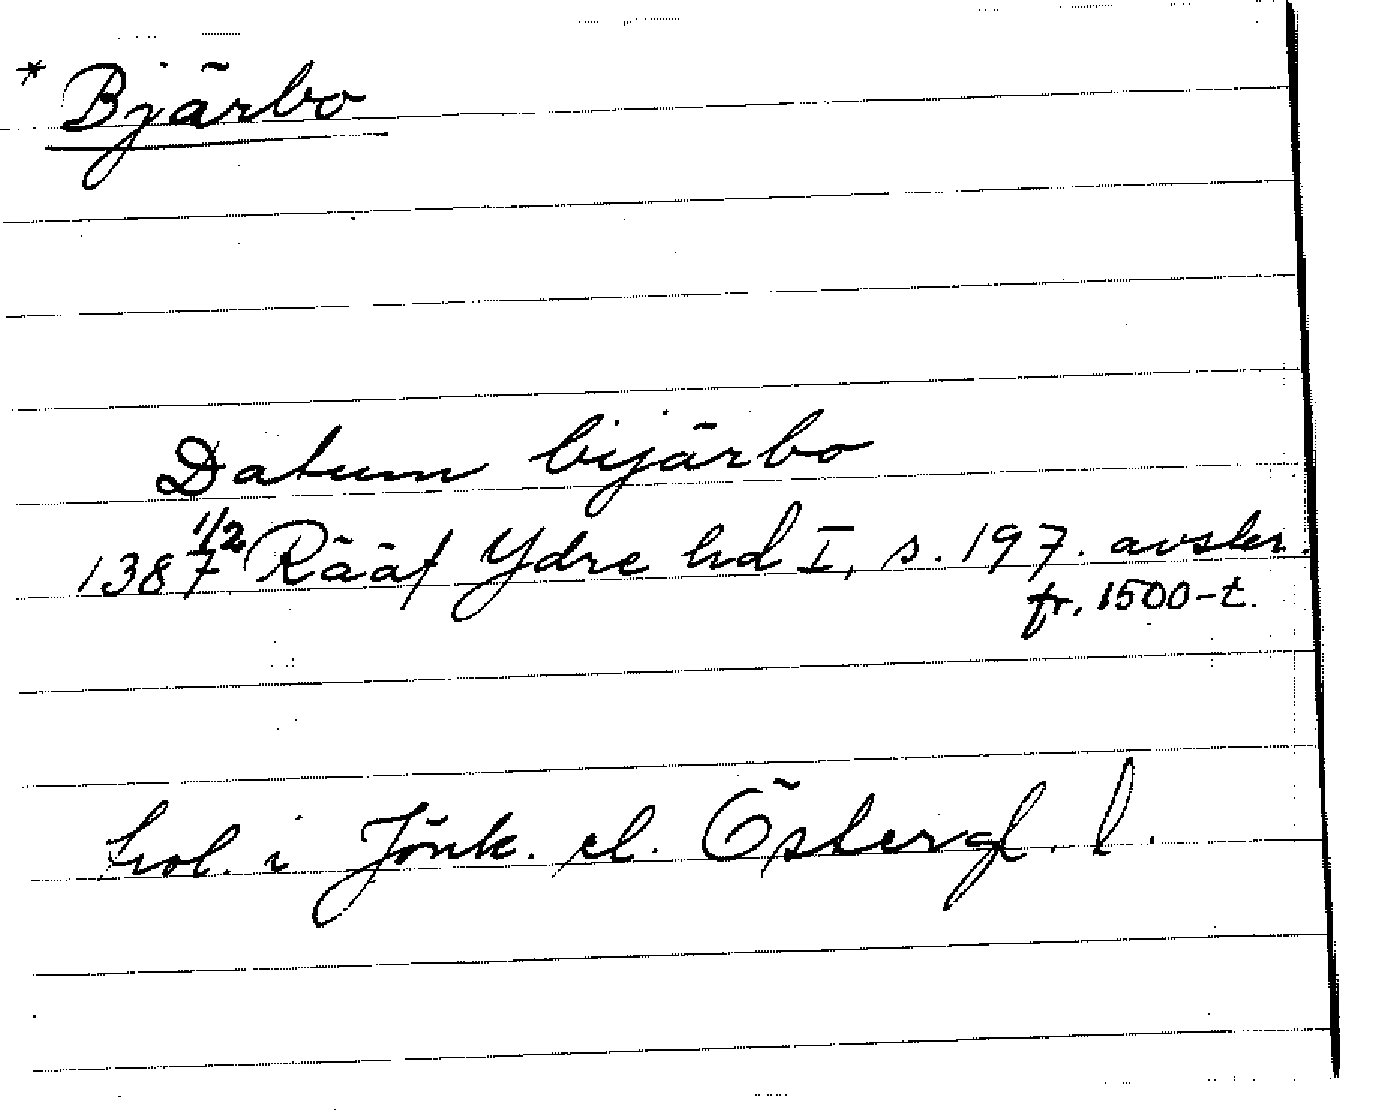 * Bjärbo
Datum bijärbo
1387 1/2 Rääf Ydre hd I, s. 197. avskr.
fr. 1500-t.
trol. i Jönk. el. Östergl. l.